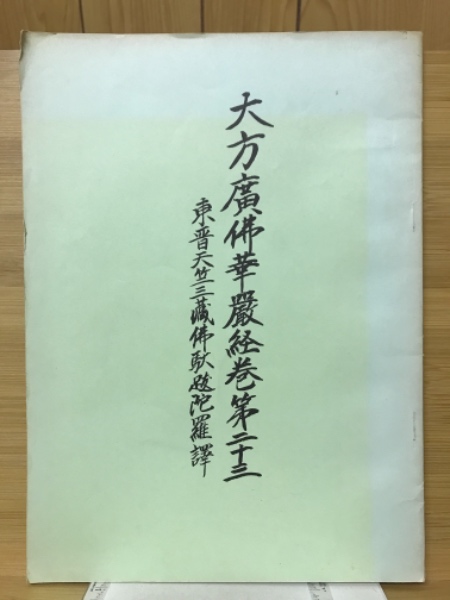 大方廣佛華嚴経巻第二十三
東晋天竺三藏佛馱跋陀羅譯